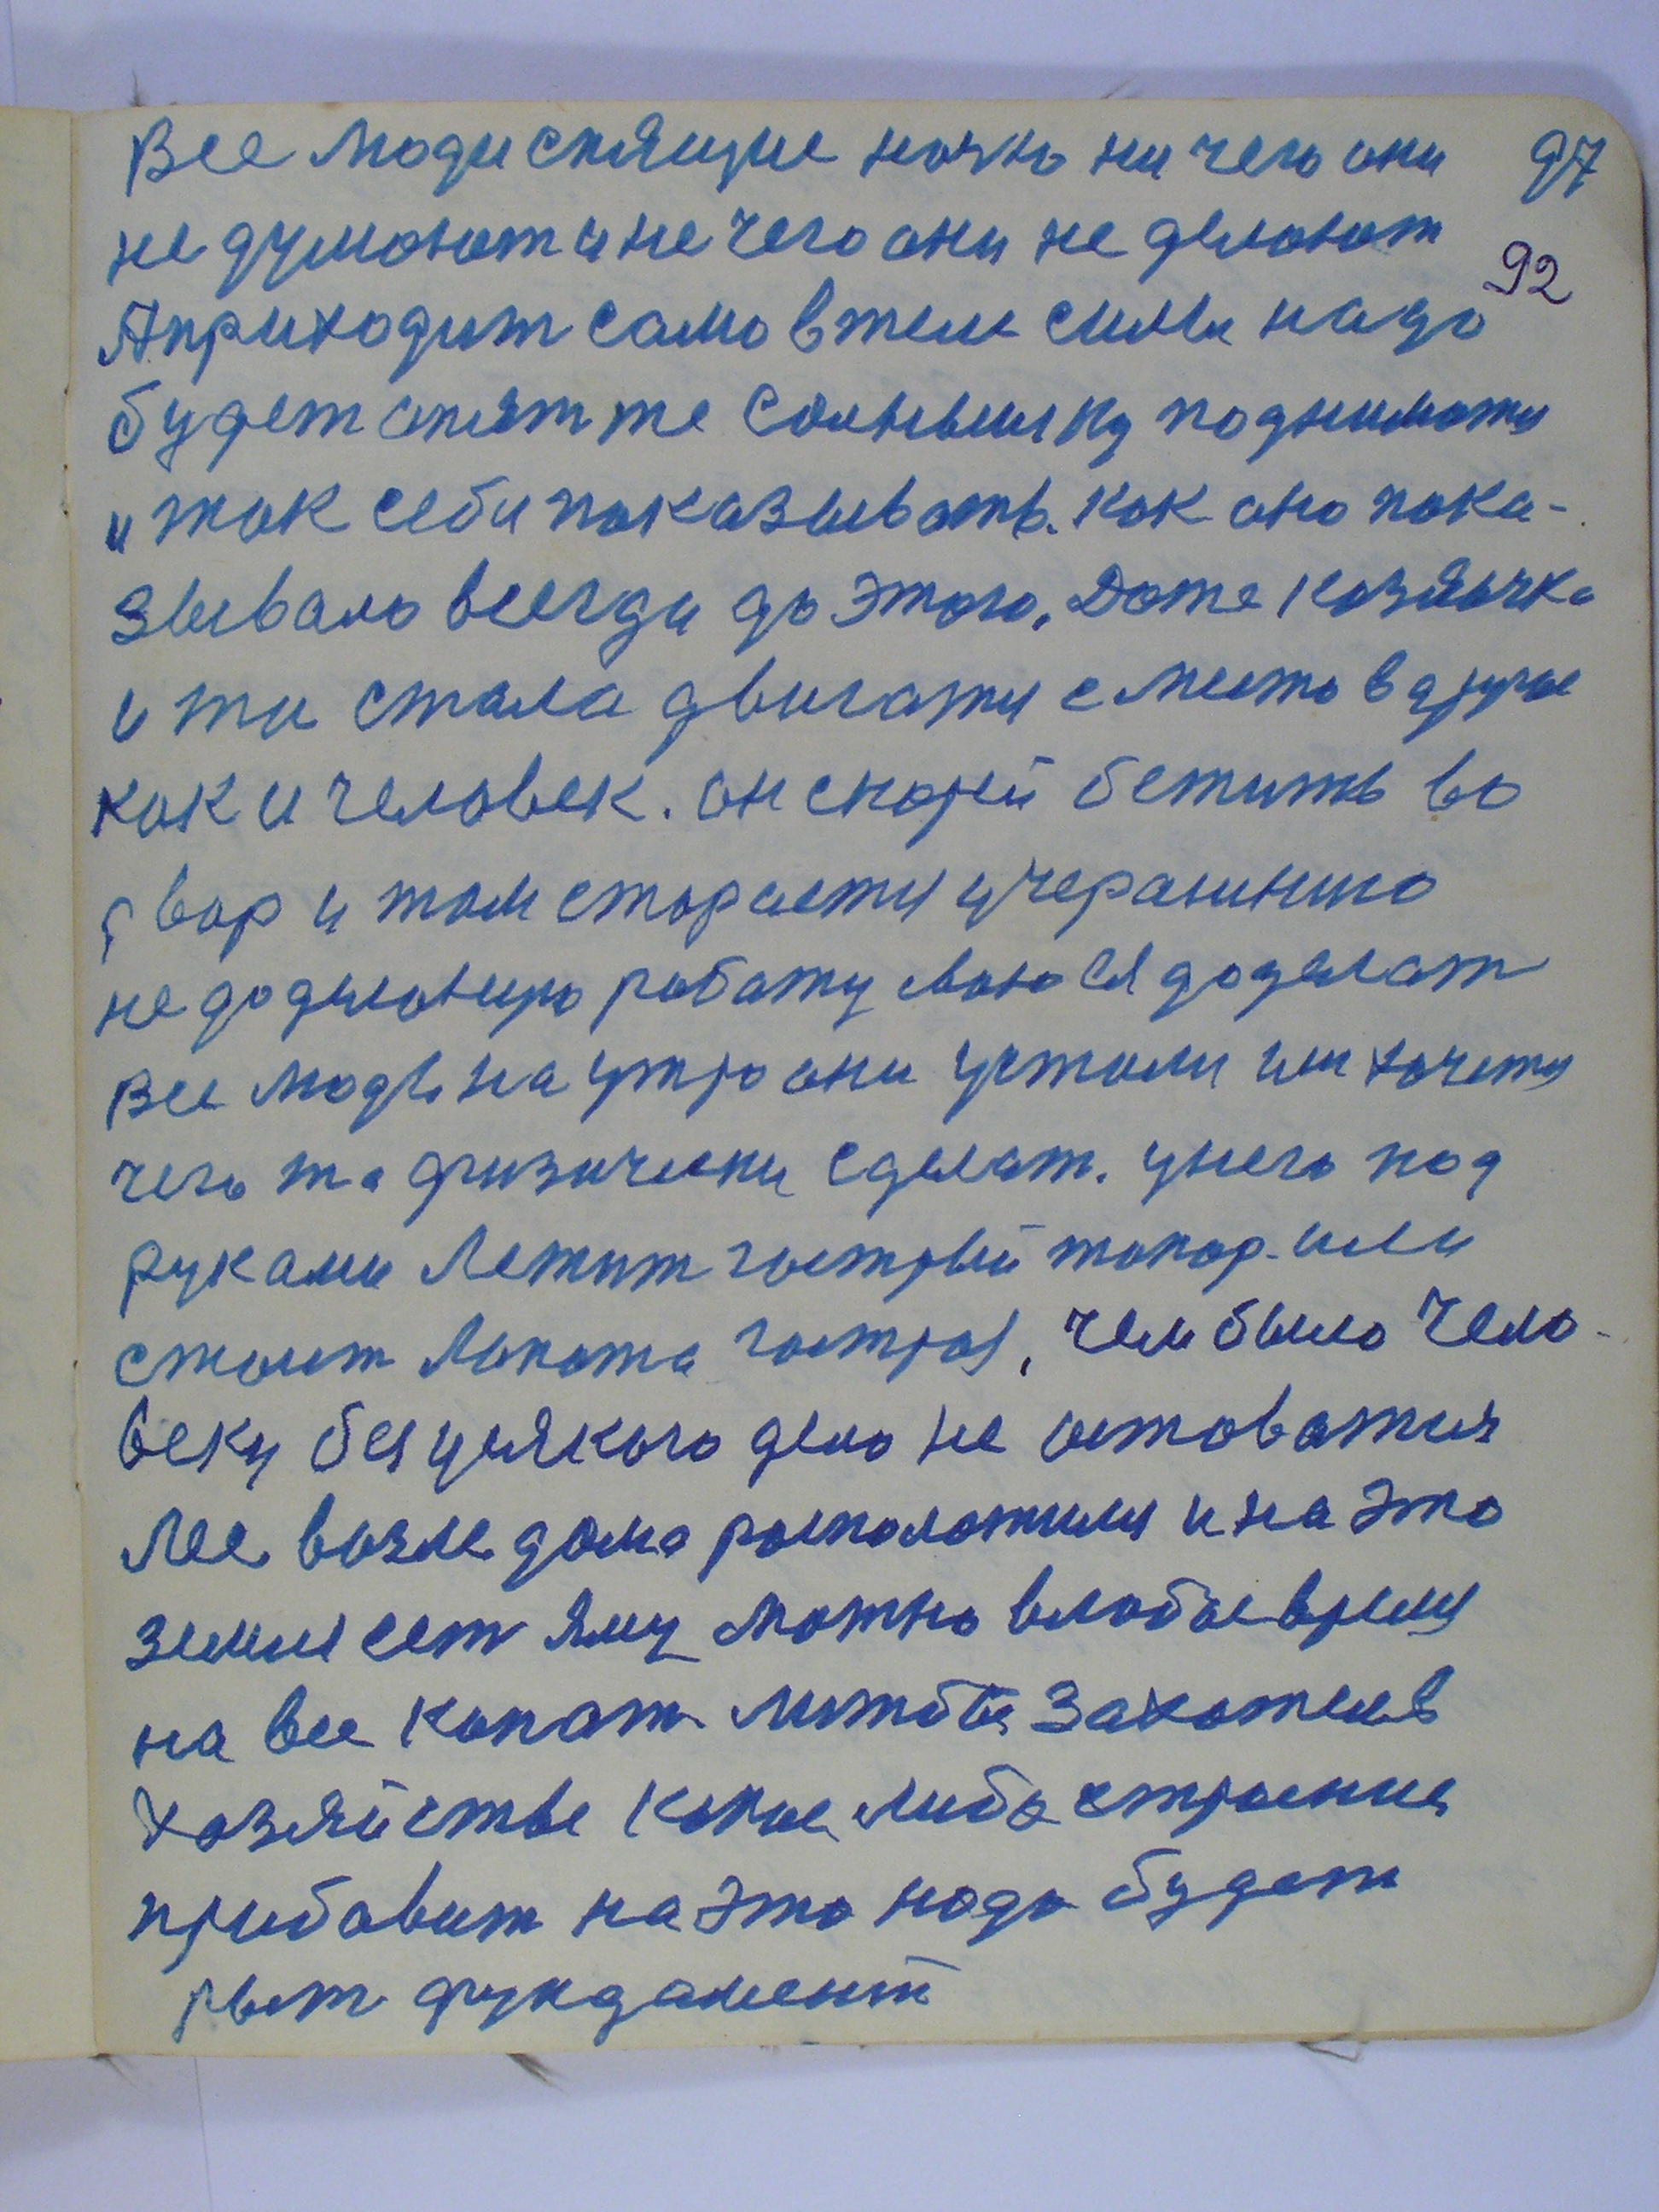 Все люди спящие ночью ни чего они 97
не думают и не чего они не делают 92
А приходит само в теле силы надо
будет опять же солнышку подниматя
и так себя показывать. как оно пока-
зывало всегда до этого. Даже козявка
и та стала двигатя с место в другое
как и человек. он скорей бежить во
двор и там стараетя учерашнию
не доделанную работу доделат
Все люди на утро они устали им хочетя
чего та физически сделат. у него под
руками лежит гострый топор. или
стоит лопата гострая, чем было чело-
веку без усякого дела не оставатися
Лес возле дома расположился и на это
земля ест яму можно в любое время
на все копат захотел в
хозяйстве какое либо строение
прибавит на это надо будет
рыт фундамент